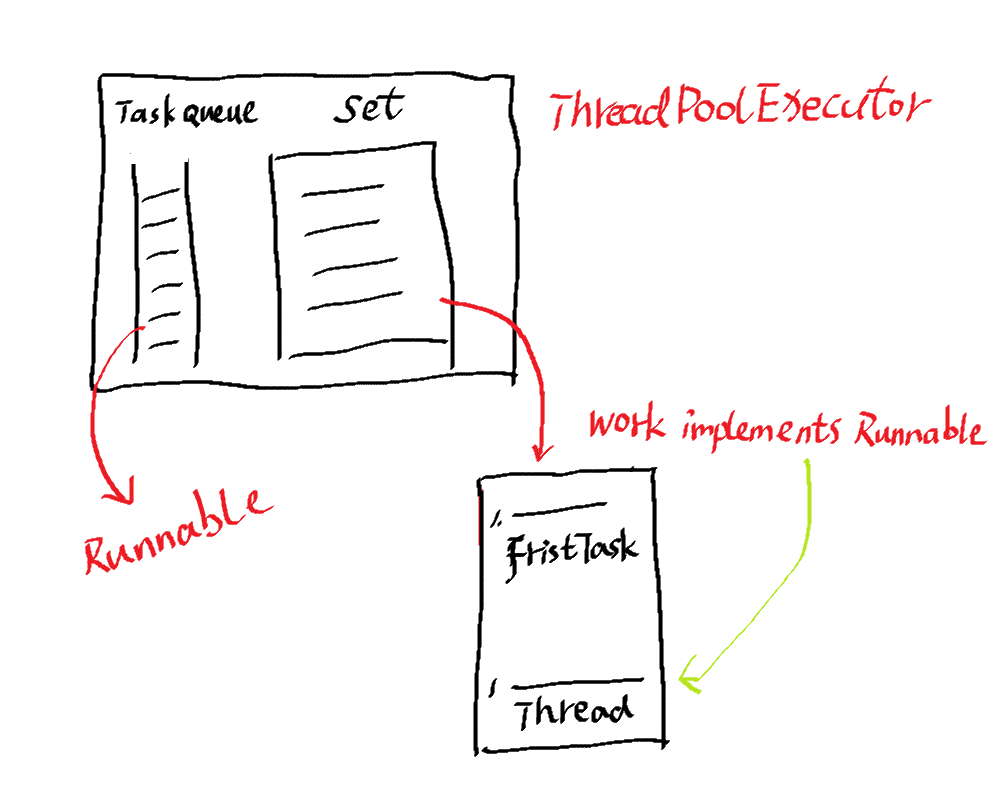 Task Queue
Set
ThreadPoolExecutor
Runnable
Work implements Runnable
FristTask
Thread